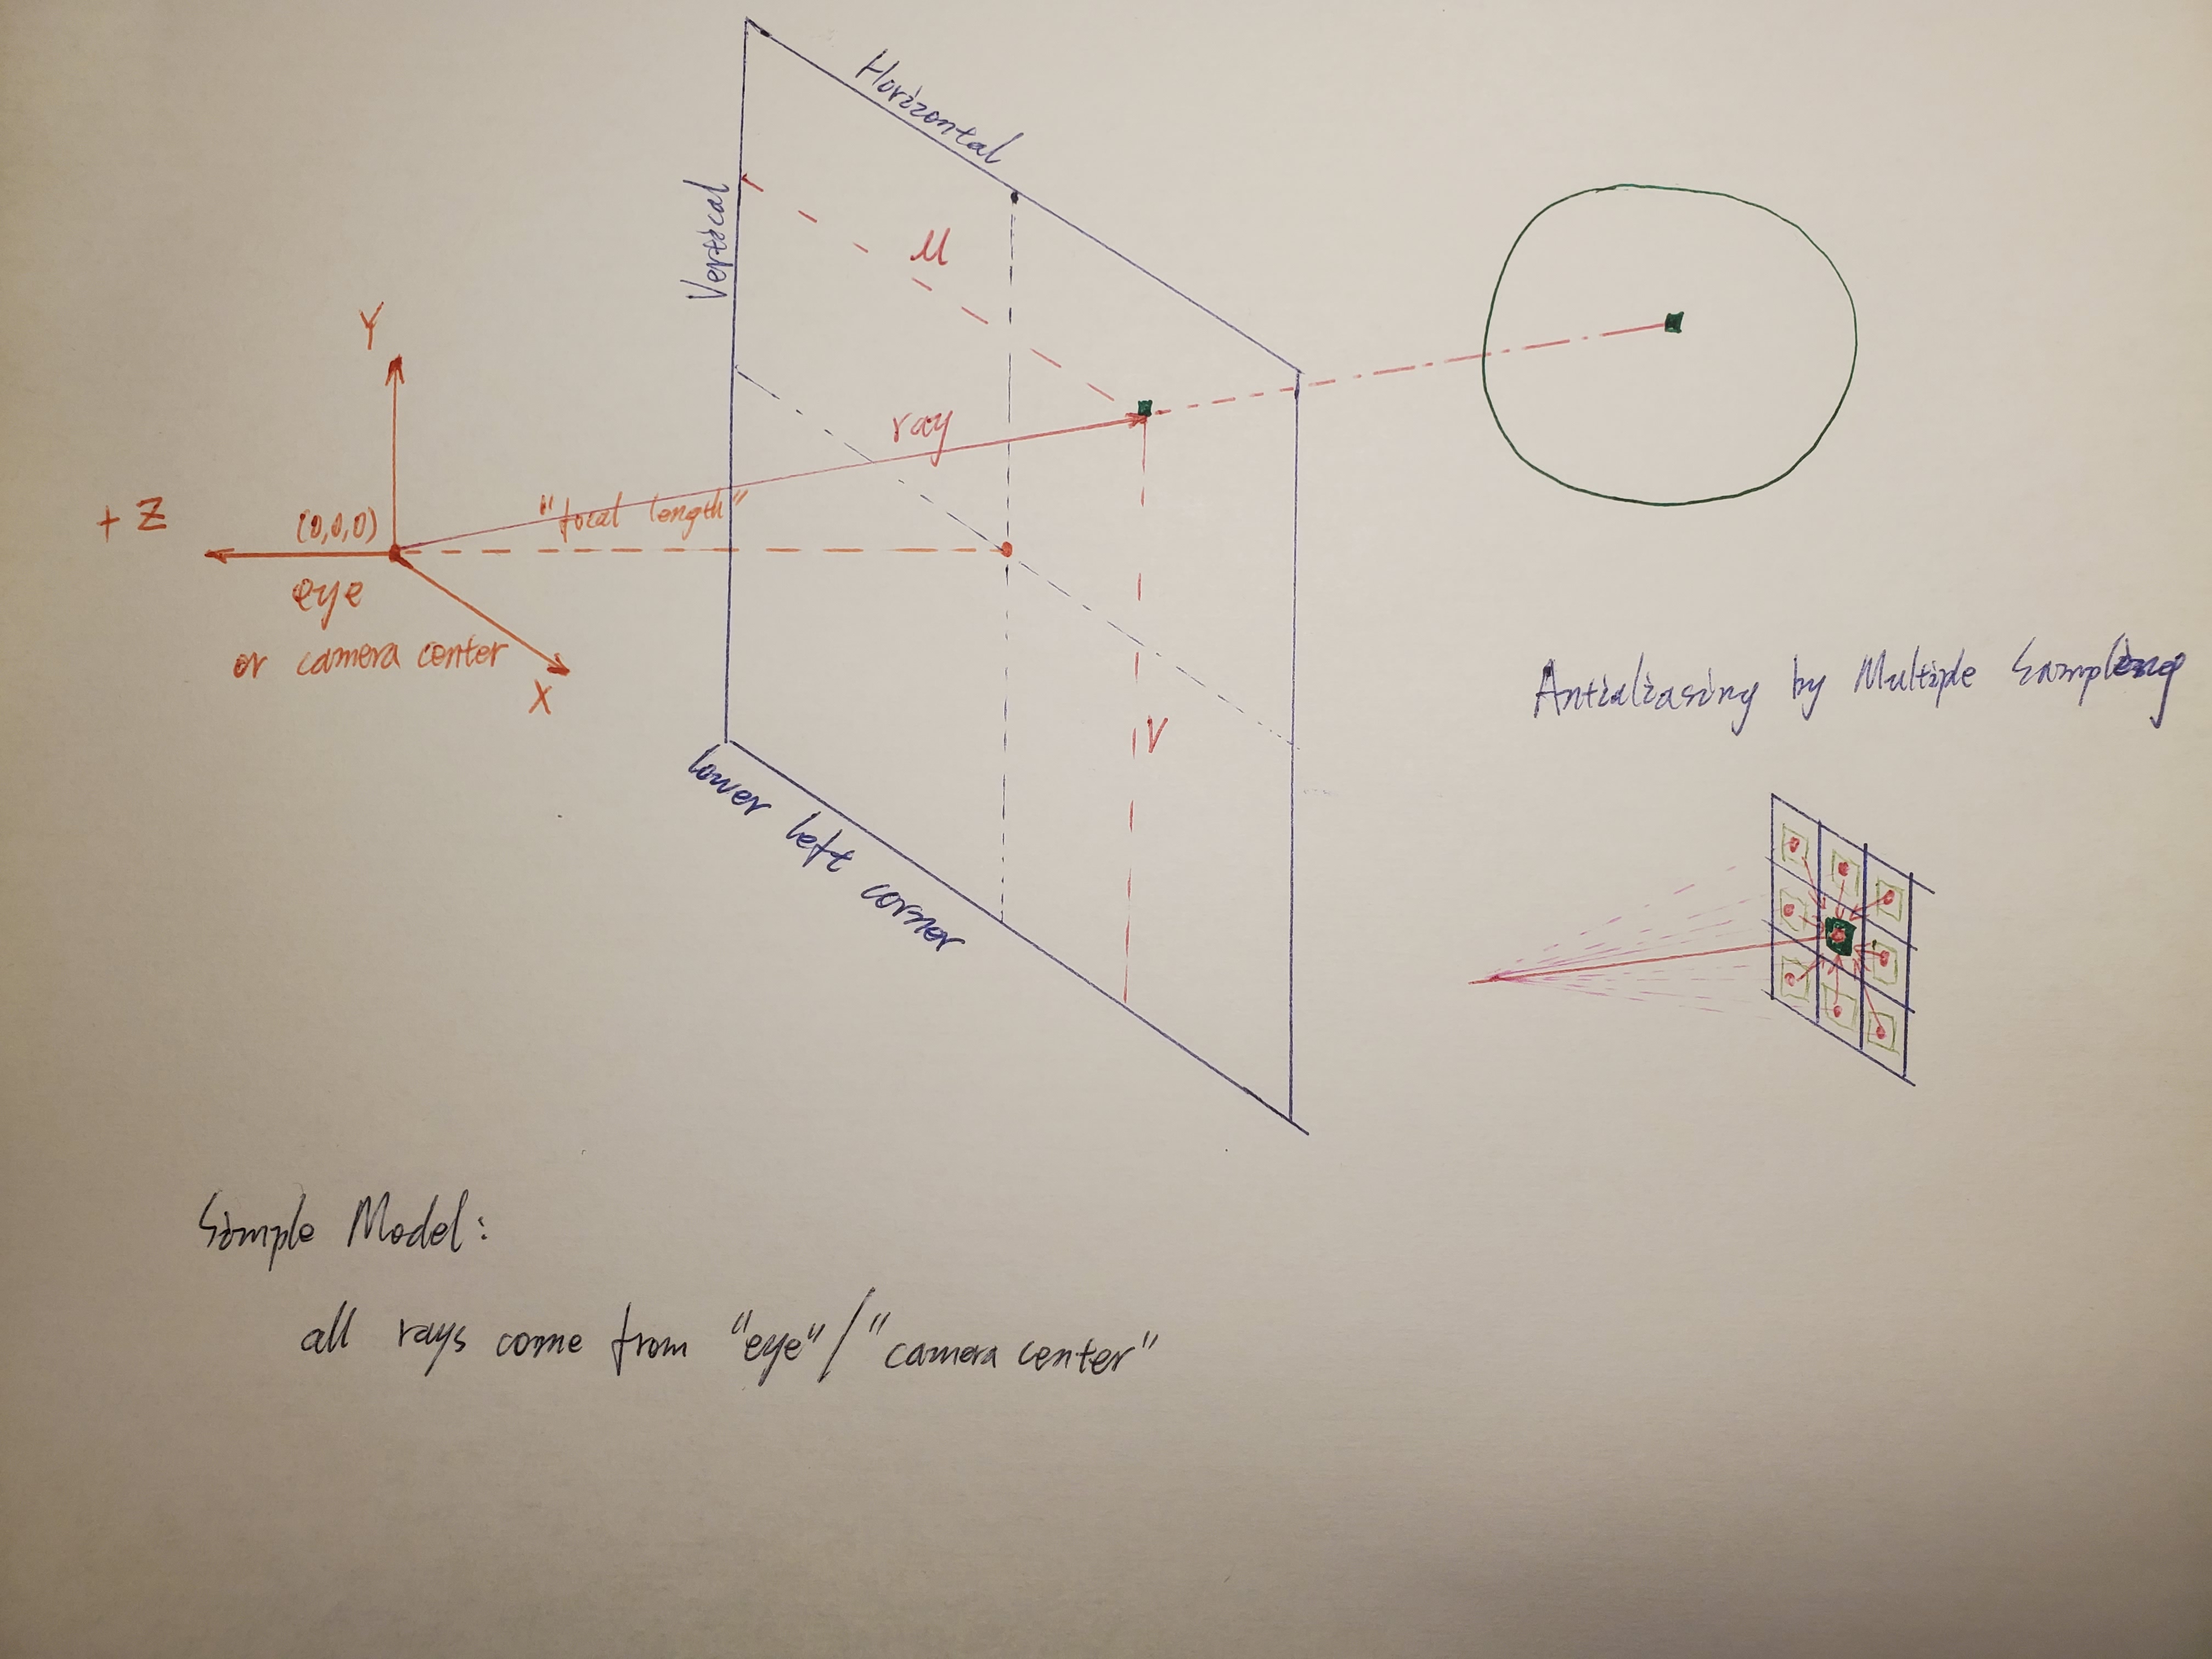 Horizontal
Vertical
u
Y
ray
+ Z
(0,0,0)
"focal length"
eye
or camera center
X
V
lower left corner
Antialiasing by Multiple Sampling
Simple Model:
all rays come from "eye"/"camera center"